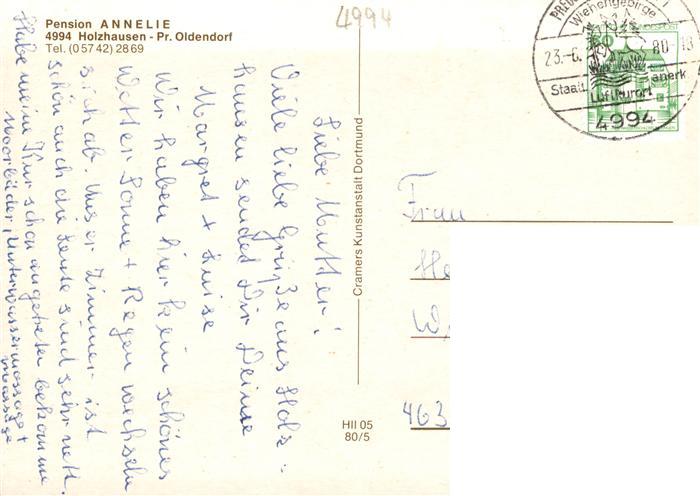 Pension ANNELIE
4994 Holzhausen - Pr. Oldendorf
Tel. (05742) 2869
4994
Liebe Mutter!
Viele liebe Grüße aus Holz-
hausen sendet Dir Deine
Margret + Luise
Wir haben hier kein schönes
Wetter Sonne + Regen wechseln
sich ab. Unser Zimmer ist
schön auch die Leute sind sehr nett.
Habe meine Kur schon angetreten bekomme
Moorbäder, Unterwassermassage +
Massage
Cramers Kunstanstalt Dortmund
HII 05
80/5
Wiehengebirge
23.-6. 80.-18
Staatl. anerk
Luftkurort
4994
60
BUNDESPOST
Frau
He
W
463